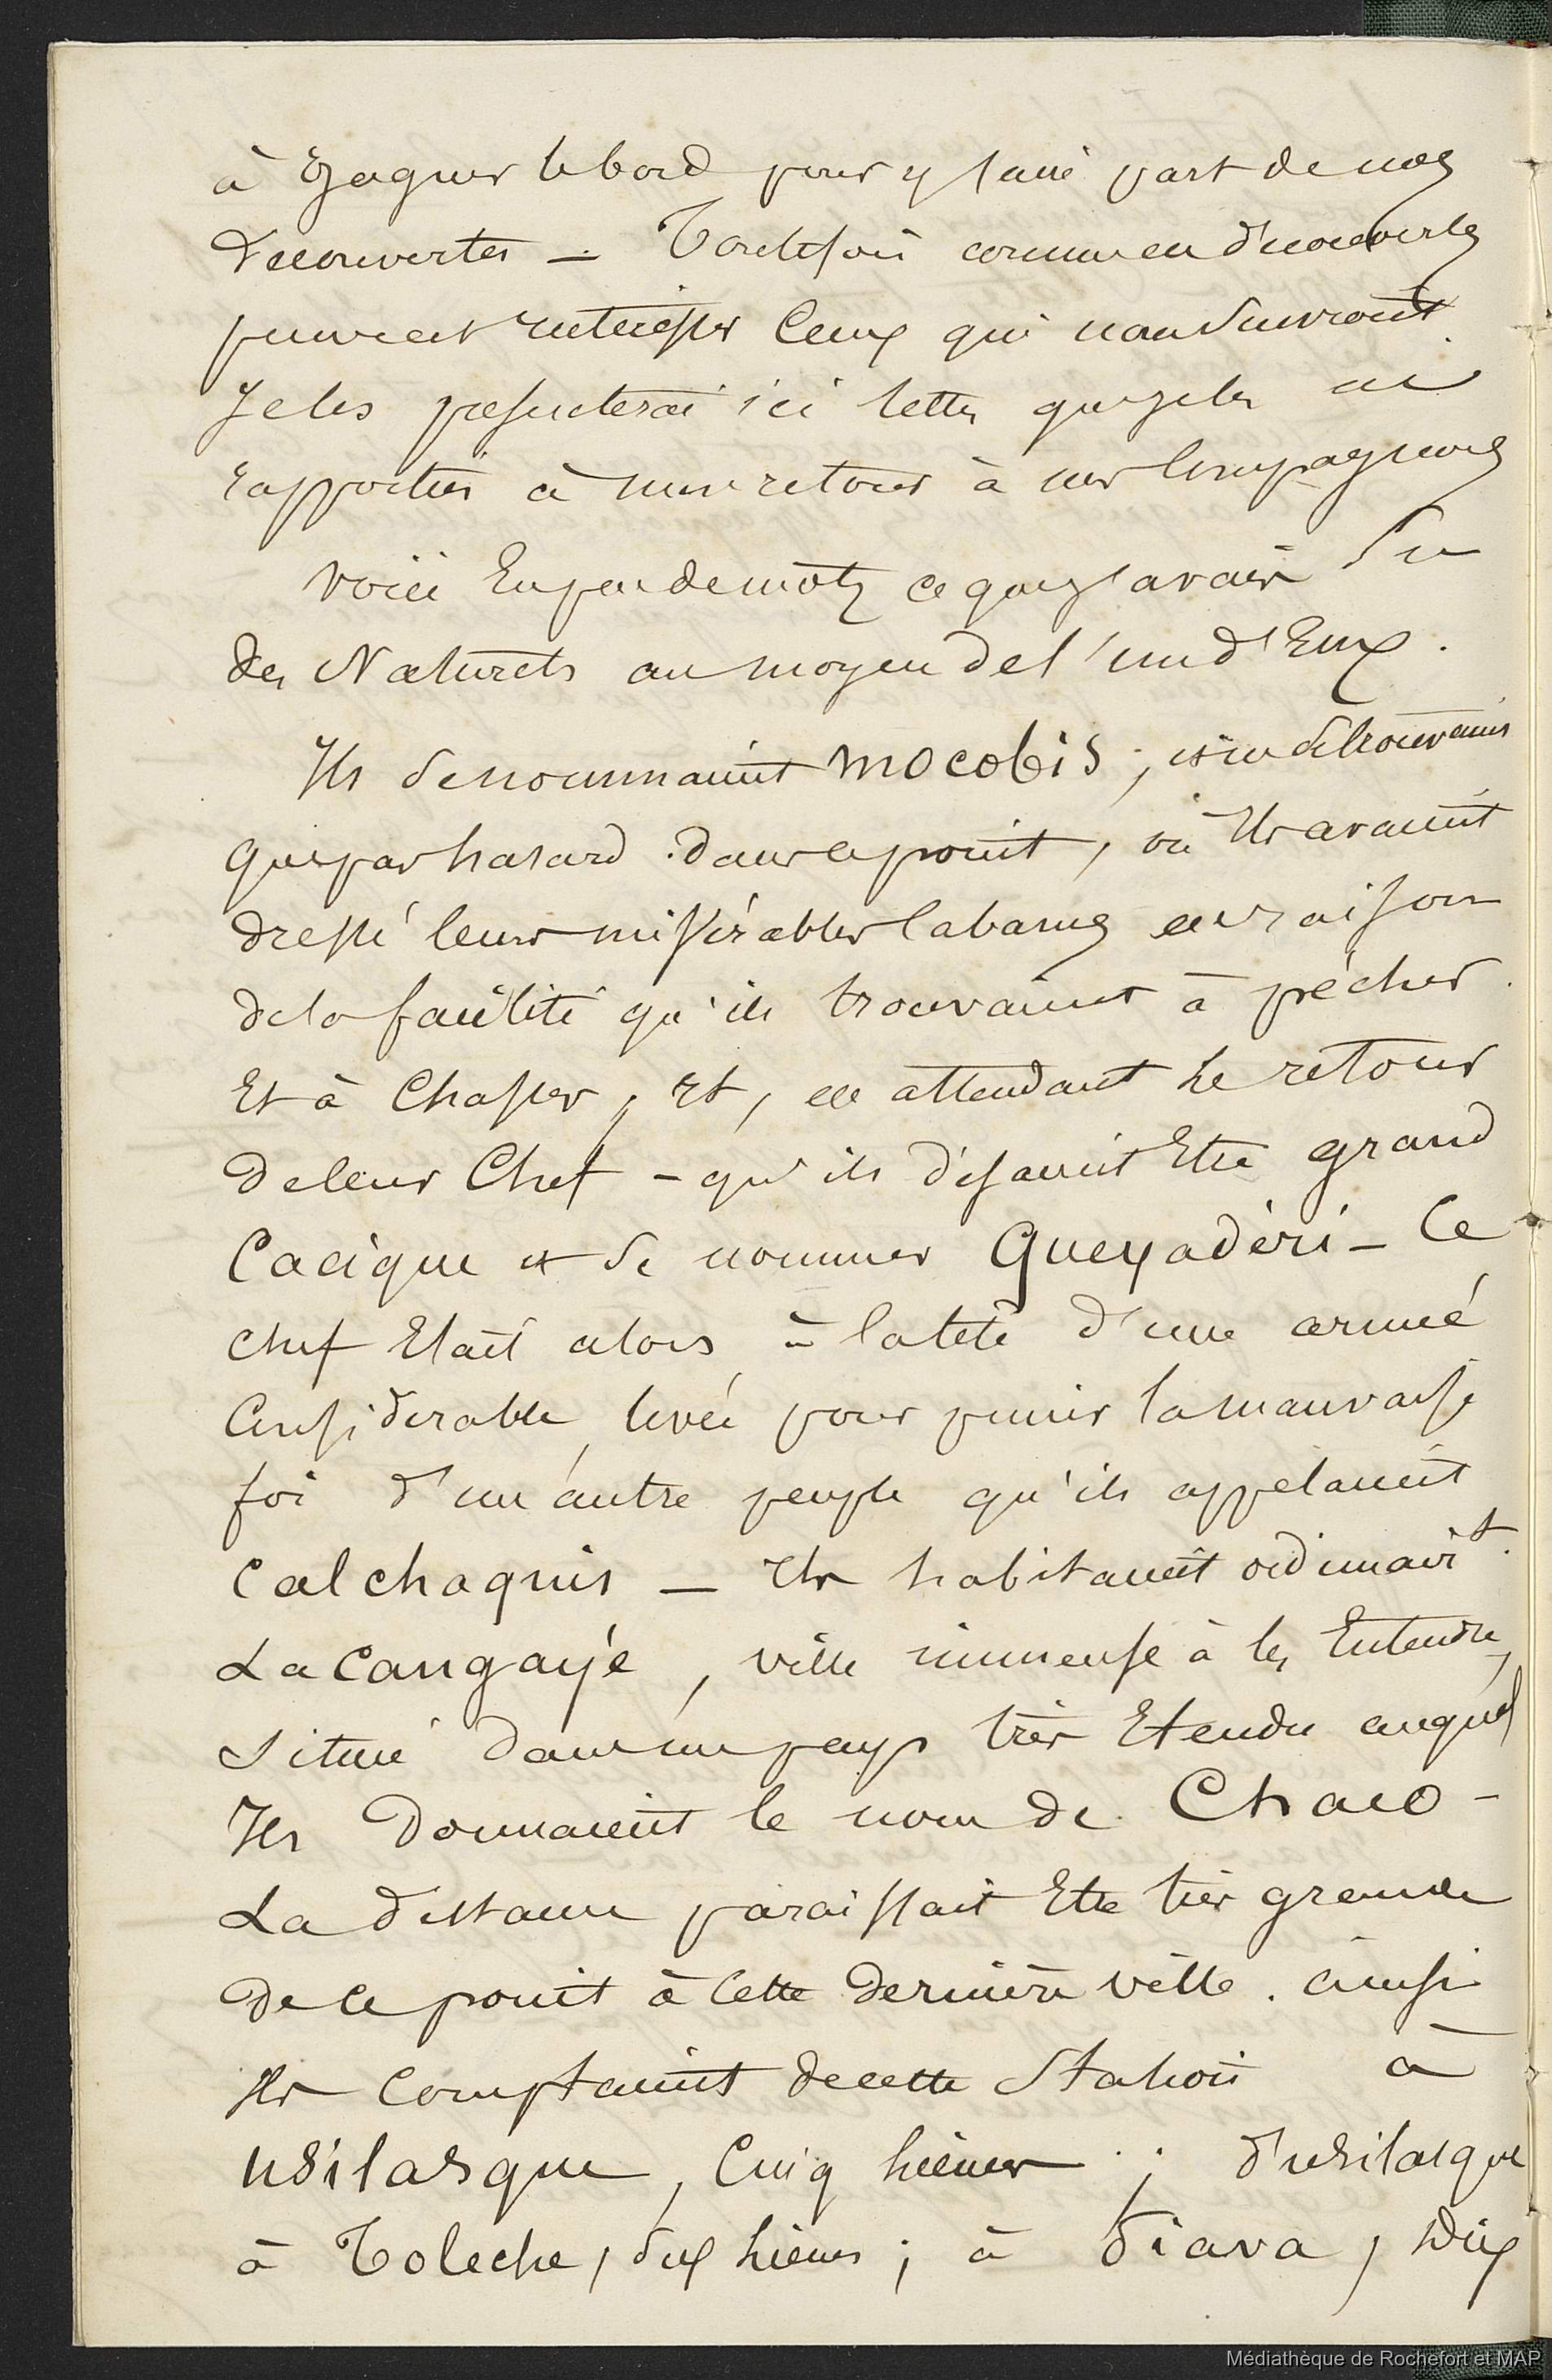 à gagner le bord pour y faire part de nos
découvertes — Toutefois comme ces découvertes
peuvent intéresser ceux qui nous suivront
Je les présenterai ici telles que je les ai
rapportées à mon retour à mes compagnons
Voici En peu de mots ce que j'avais su
des Naturels au moyen de l'un d'Eux.
Ils se nommaient mocobis ; et ne se trouvaient
que par hasard dans ce point, où Ils avaient
dressé leurs misérables Cabanes en raison
de la facilité qu'ils trouvaient à pêcher
Et à Chasser, Et, en attendant le retour
de leur Chef - qu'ils disaient Etre grand
Cacique et se nommer Queyadéri - Ce
chef Etait alors à la tête d'une armée
Considerable, levée pour punir la mauvaise
foi d'un autre peuple qu'ils appelaient
Calchaquis — Ils habitaient ordinairt.
La Cangayé, ville immense à les Entendre,
située dans un pays très Etendu auquel
Ils Donnaient le nom de Chaco -
La distance paraissait Etre très grande
de ce point à Cette dernière ville. ainsi
Ils Comptaient de cette Station à
usilasque, Cinq lieues ; d'usilasque
à Toleche, dix lieues ; à Tiava, Dix